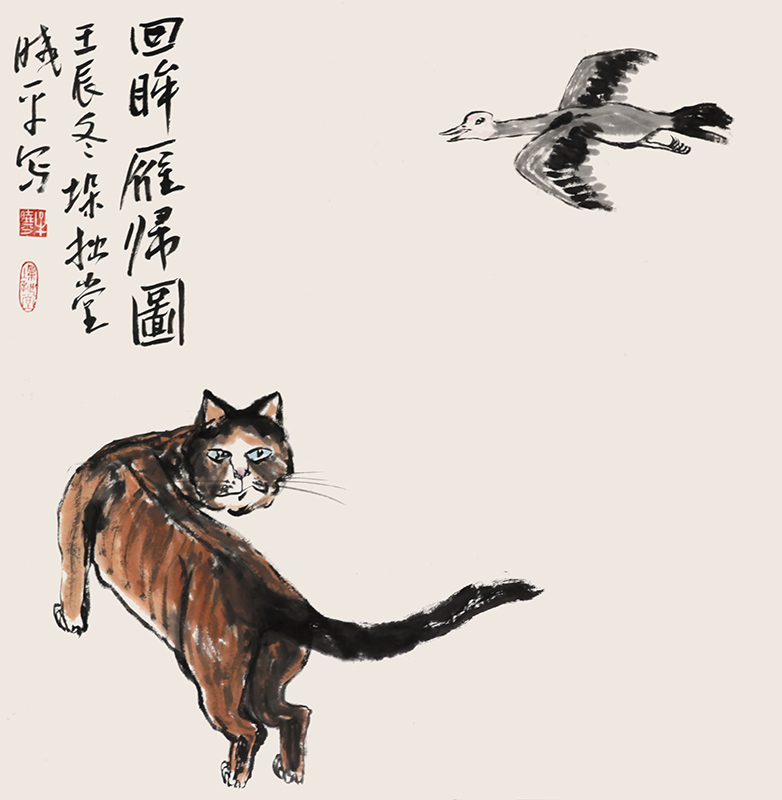 回眸雁归圖
壬辰冬垛拙堂
曉平写